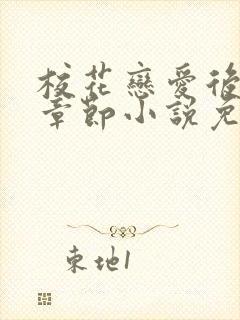 校花戀愛後
章節小說免
東地1